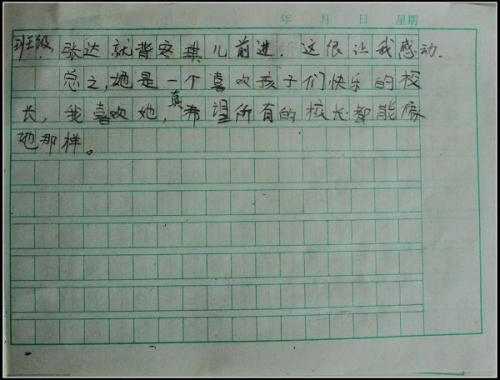 年 月 日 星期
班级，张达就背安琪儿前进．这很让我感动．
总之，她是一个喜欢孩子们快乐的校
长，我喜欢她，真希望所有的校长都能像
她那样。